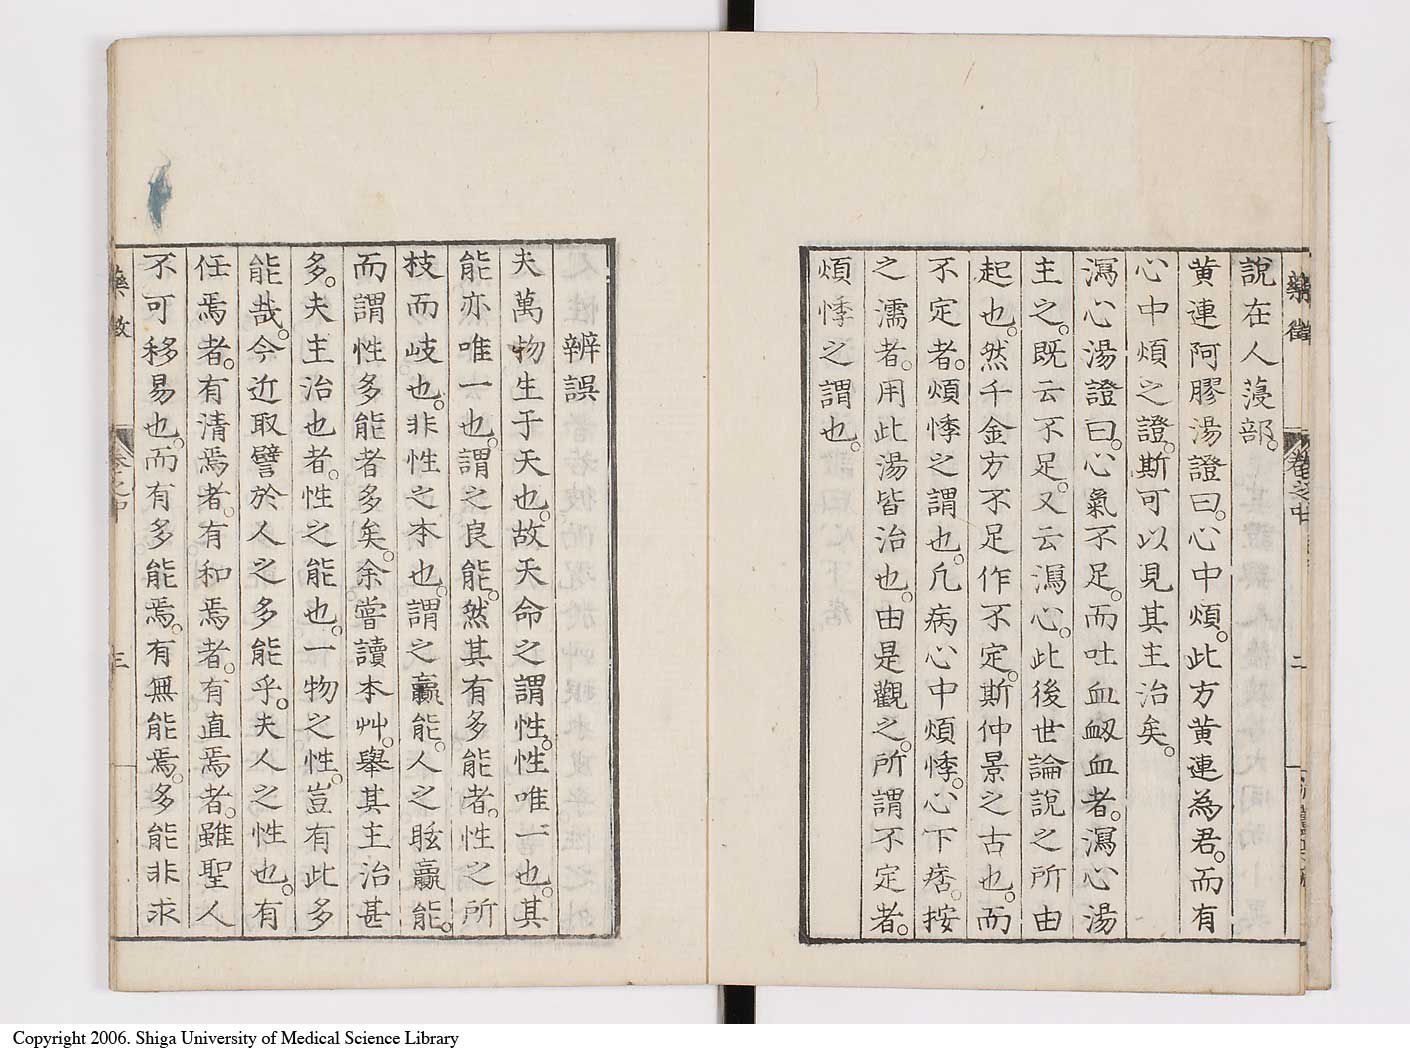 藥徵
卷之中
二
說在人蓡部。
黃連阿膠湯證曰。心中煩。此方黃連為君。而有
心中煩之證。斯可以見其主治矣。
瀉心湯證曰。心氣不足。而吐血衂血者。瀉心湯
主之。既云不足。又云瀉心。此後世論說之所由
起也。然千金方不足作不定。斯仲景之古也。而
不定者。煩悸之謂也。凢病心中煩悸。心下痞。按
之濡者。用此湯皆治也。由是觀之。所謂不定者。
煩悸之謂也。
辨誤
夫萬物生于天也。故天命之謂性。性唯一也。其
能亦唯一也。謂之良能。然其有多能者。性之所
枝而岐也。非性之本也。謂之贏能。人之眩贏能。
而謂性多能者多矣。余嘗讀本艸。舉其主治甚
多。夫主治也者。性之能也。一物之性。豈有此多
能哉。今近取譬於人之多能乎。夫人之性也。有
任焉者。有清焉者。有和焉者。有直焉者。雖聖人
不可移易也。而有多能焉。有無能焉。多能非求
藥徵
卷之中
三
Copyright 2006. Shiga University of Medical Science Library